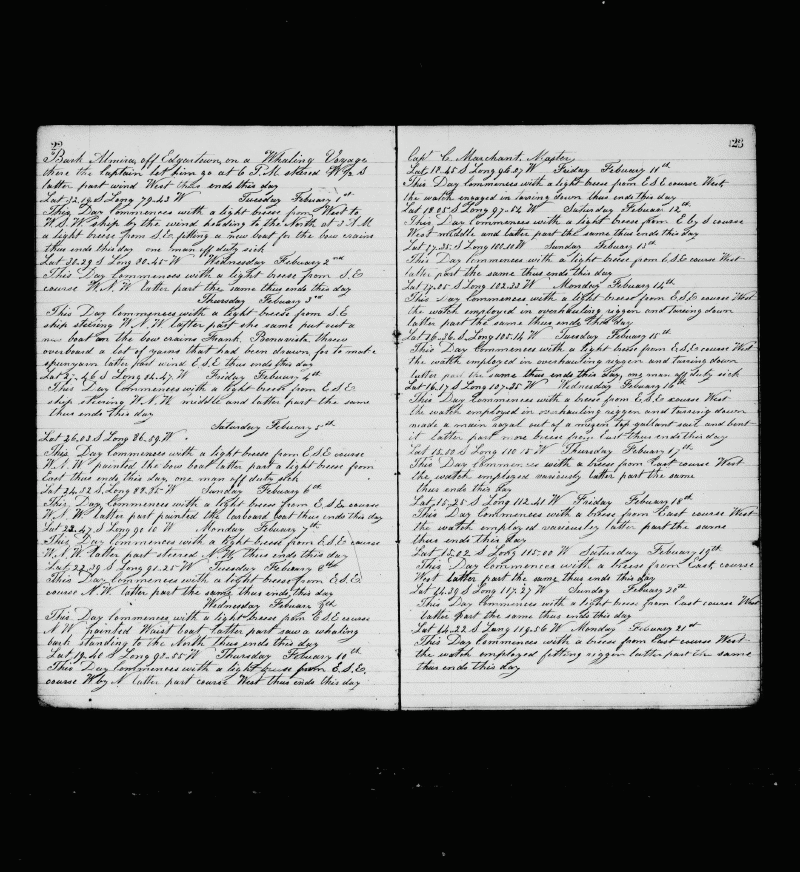 22
Bark Almira, off Edgartown, on a Whaling Voyage
there the Captain let him go at 6 P.M steered W by S
latter part wind West thus ends this day
Lat 32.19 S Long 79.43 W Tuesday Febuary 1st
This Day Commences with a light breese from West to
W.S.W. ship by the wind heading to the North at 3 A M
a light breese from S.E. fitting a new boat for the bow crains
thus ends this day one man off duty sick
Lat 30.29 S Long 80.45 W Wednesday Febuary 2nd
This Day Commences with a light breese from S.E
course W.N.W. latter part the same thus ends this day
Thursday Febuary 3rd
This Day Commences with a light breese from S.E
ship steering W.N.W. latter part the same put out a
new boat on the bow crains Frank Benavista threw
overboard a lot of yarns that had been drawn for to make
spunyarn latter part wind E.S.E thus ends this day
Lat 27.46 S Long 84.47 W Friday Febuary 4th
This Day Commences with a light breese from E.S.E
ship steering W.N.W. middle and latter part the same
thus ends this day
Saturday Febuary 5th
Lat 26.03 S Long 86.59 W.
This Day Commences with a light breese from E S E course
W.N.W. painted the bow boat latter part a light breese from
East thus ends this day, one man off duty sick
Lat 24.52 S, Long 88.35 W Sunday Febuary 6th
This Day Commences with a light breese from E.S.E. course
W.N.W. latter part painted the Larboard boat thus ends this day
Lat 23.47 S Long 90 10 W Monday Febuary 7th
This Day Commences with a light breese from E.S.E course
W.N.W. latter part steered N.W. thus ends this day
Lat 22.39 S Long 91.25 W Tuesday Febuary 8th
This Day Commences with a light breese from E.S.E.
course N.W. latter part the same thus ends this day
Wednesday Febuar 9th
This Day Commences with a light breese from E S E course
N.W. painted Waist boat latter part saw a whaling
bark standing to the North thus ends this day
Lat 19.40 S Long 93.55 W Thursday Febuary 10th
This Day Commences with a light breese from E.S.E.
course W by N latter part course West thus ends this day
23
Capt C. Marchant, Master
Lat 18.45 S Long 96.07 W Friday Febuary 11th
This Day Commences with a light breese from E S E course West
the watch engaged in tarring down thus ends this day
Lat 18.05 S Long 97.54 W Saturday Febuary 12th
This Day Commences with a light breese from E by S course
West middle and latter part the same thus ends this day
Lat 17.35 S Long 100.10 W Sunday Febuary 13th
This Day Commences with a light breese from E S E course West
latter part the same thus ends this day
Lat 17.05 S Long 103.33 W Monday Febuary 14th
This Day Commences with a light breese from E.S.E course West
the watch employed in overhauling riggen and tarring down
latter part the same thus ends this day
Lat 16.36 S Long 105.14 W Tuesday Febuary 15th
This Day Commences with a light breese from E.S.E course West
the watch employed in overhauling riggen and tarring down
latter part the same thus ends this Day, one man off duty sick
Lat 16.17 S Long 107.25 W Wednesday Febuary 16th
This Day Commences with a breese from E.S.E course West
the watch employed in overhauling riggen and tarring down
made a main royal out of a mizen top gallant sail and bent
it latter part more breese from East thus ends this day
Lat 15.50 S Long 110 15 W Thursday Febuary 17th
This Day Commences with a breese from East course West
the watch employed variously latter part the same
thus ends this day
Lat 15.25 S Long 112.41 W Friday Febuary 18th
This Day Commences with a breese from East course West
the watch employed variously latter part the same
thus ends this day
Lat 15.02 S Long 115.00 W Saturday Febuary 19th
This Day Commences with a breese from East course
West latter part the same thus ends this day
Lat 14.39 S Long 117.27 W Sunday Febuary 20th
This Day Commences with a light breese from East course West
latter part the same thus ends this day
Lat 14.22 S Long 119.56 W Monday Febuary 21st
This Day Commences with a breese from East course West
the watch employed fitting riggen latter part the same
thus ends this day